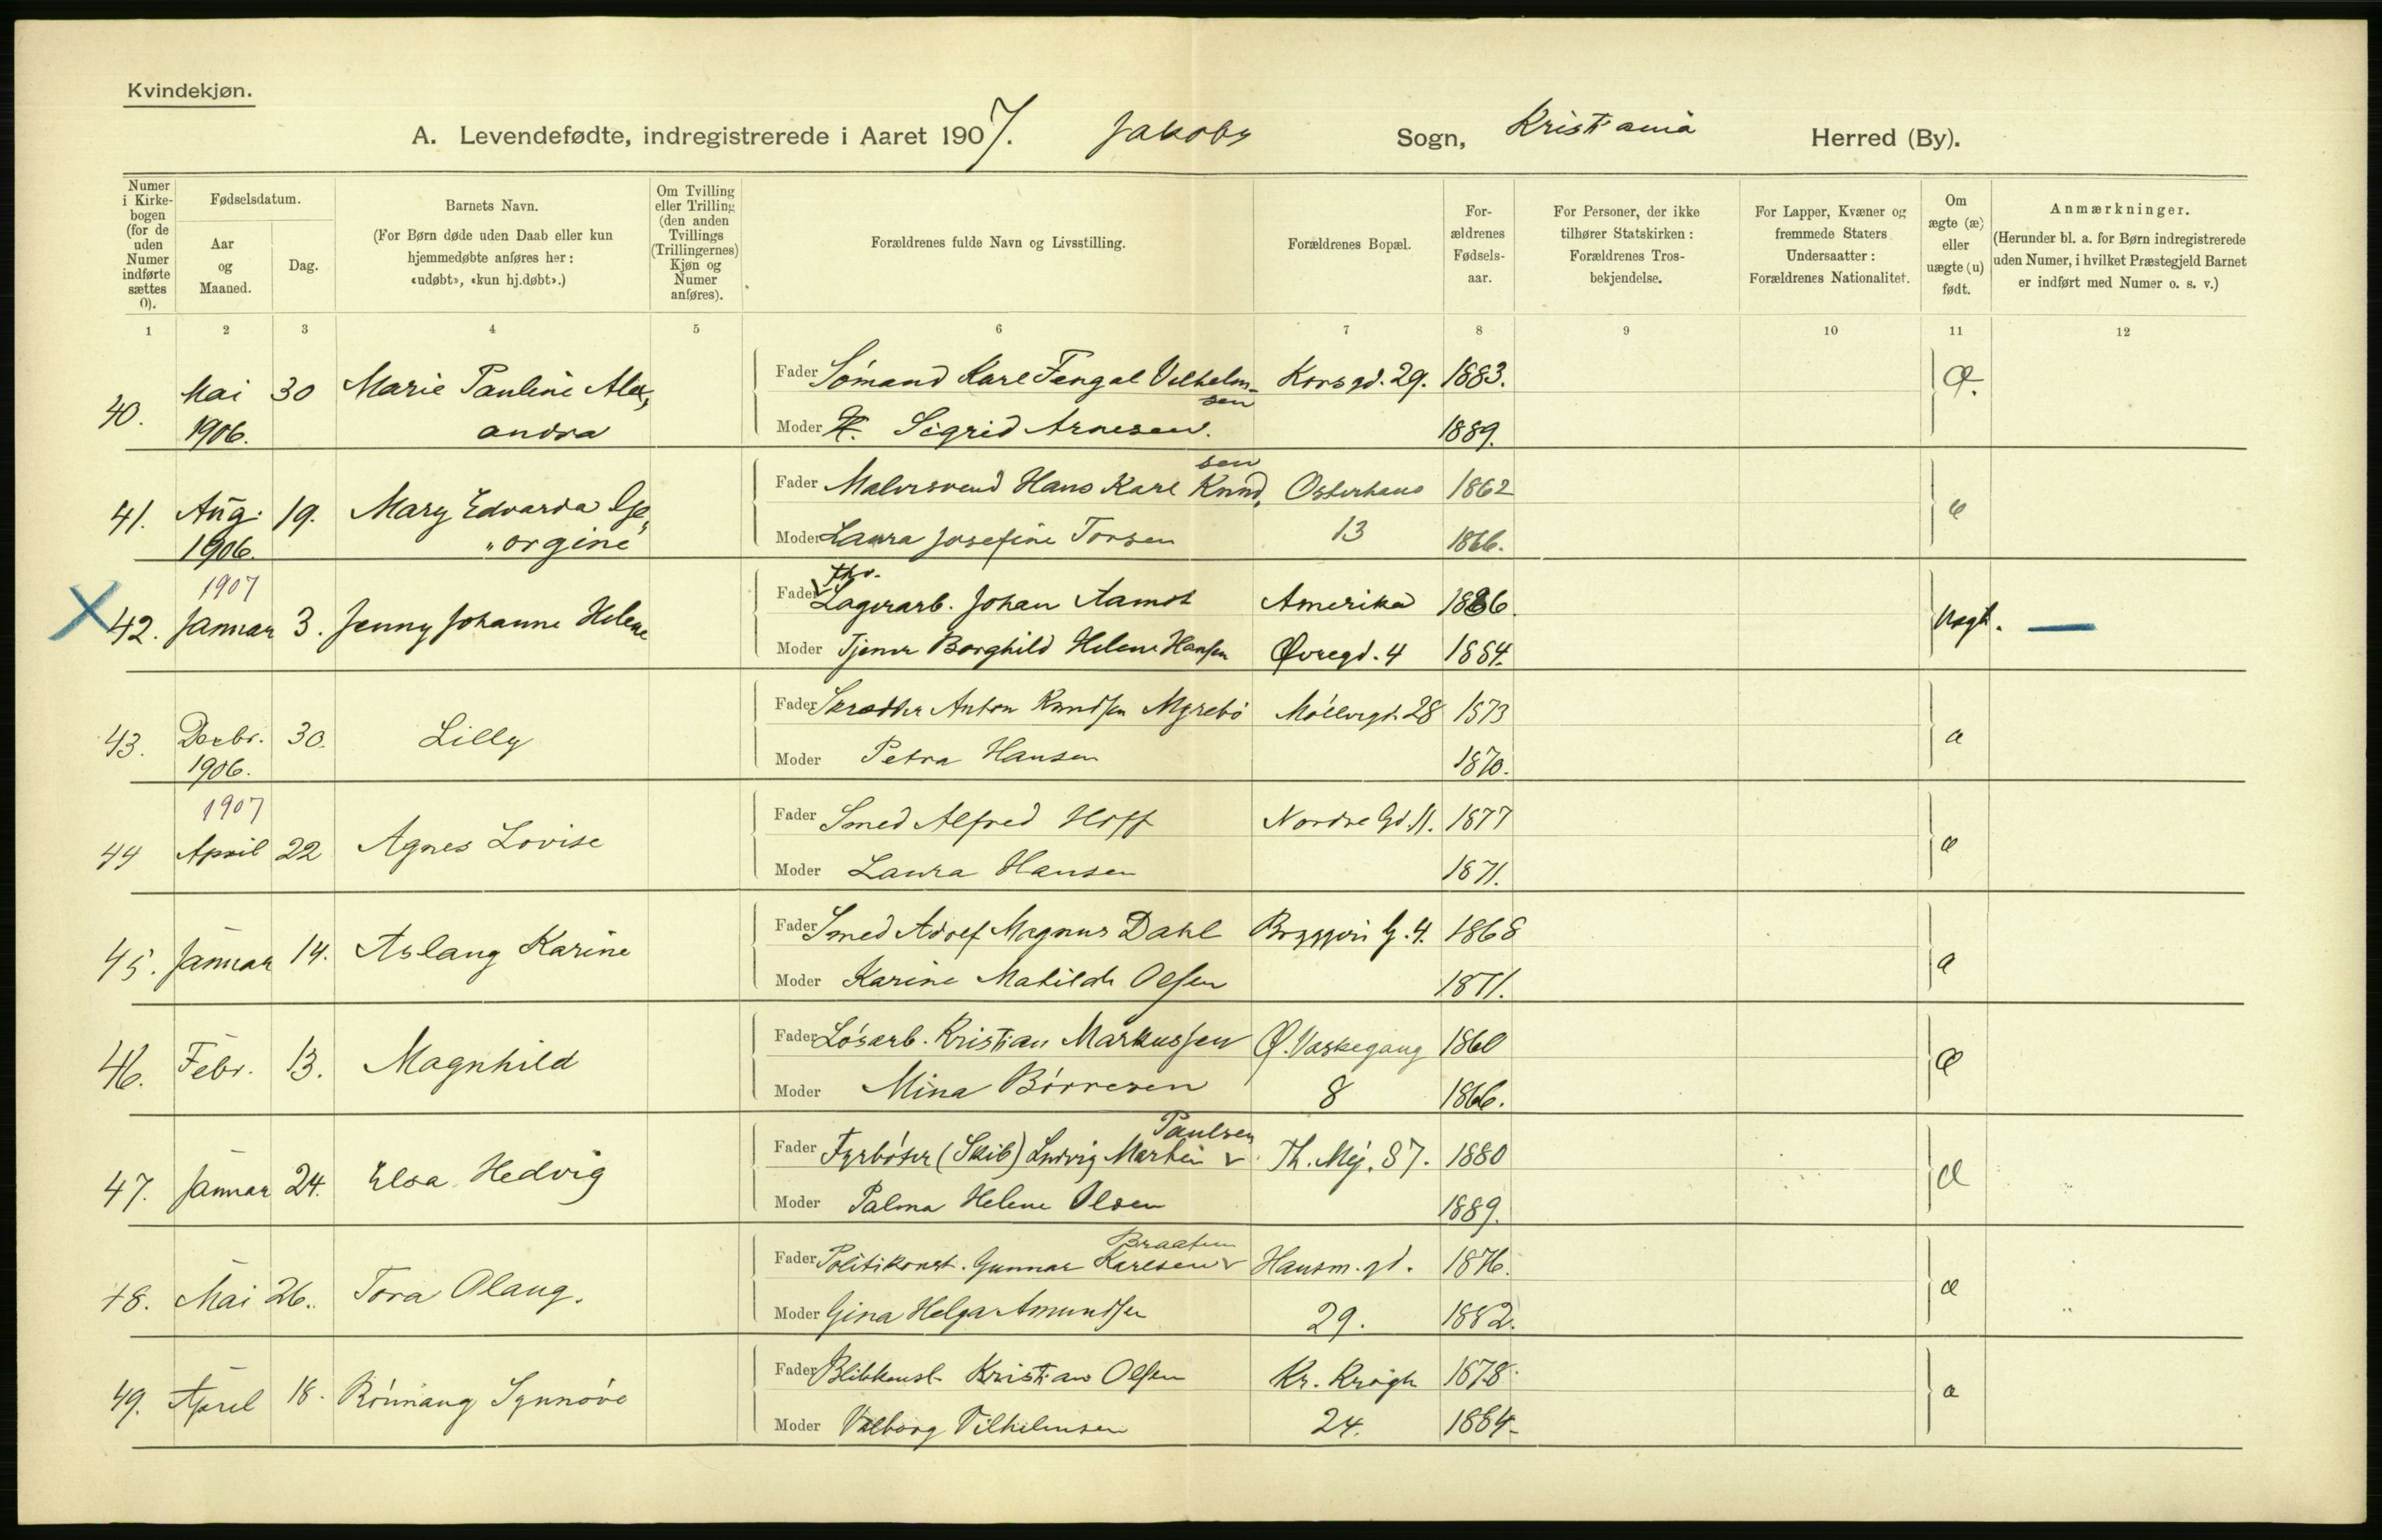 Kvindekjøn.
A. Levendefødte, indregistrerede i Aaret 1907. Jakobs Sogn, Kristiania Herred (By).
Numer i Kirkebogen (for de uden Numer indførte sættes 0).
Fødselsdatum.
Aar og Maaned.
Dag.
Barnets Navn.
(For Børn døde uden Daab eller kun hjemmedøbte anføres her: «udøbt», «kun hj.døbt».)
Om Tvilling eller Trilling (den anden Tvillings (Trillingernes) Kjøn og Numer anføres).
Forældrenes fulde Navn og Livsstilling.
Forældrenes Bopæl.
Forældrenes Fødselsaar.
For Personer, der ikke tilhører Statskirken: Forældrenes Trosbekjendelse.
For Lapper, Kvæner og fremmede Staters Undersaatter: Forældrenes Nationalitet.
Om ægte (æ) eller uægte (u) født.
Anmærkninger.
(Herunder bl. a. for Børn indregistrerede uden Numer, i hvilket Præstegjeld Barnet er indført med Numer o. s. v.)
1 2 3 4 5 6 7 8 9 10 11 12
40. Mai 30 Marie Pauline Alex, Fader Sömand Karl Fengal Vilhelm- Korsgd. 29. 1883. Æ.
sen
1906. andra Moder H. Sigrid Arnesen. 1889.
sen
41. Aug. 19. Mary Edvarda Ge, Fader Malersvend Hans Karl Knud, Osterhaus 1862 æ
1906. „orgine Moder Laura Josefine Torsen 13 1866.
1907 Fader Lagerarb. Johan Aamot Amerika 1886.
X 42. Januar 3. Jenny Johanne Helene Uægt. —
Moder Tjener Borghild Helene Hansen Øvregd. 4 1884.
Fader Skrædder Anton Knudsen Myrebö Möllergd. 28 1873
43. Decbr. 30. Lilly æ
1906. Moder Petra Hansen 1870.
1907 Fader Smed Alfred Hoff Nordre Gd. 11. 1877
44 April 22 Agnes Lovise æ
Moder Laura Hansen 1871.
Fader Smed Adolf Magnus Dahl Bryggeri G. 4. 1868
45. Januar 14. Aslaug Karine æ
Moder Karine Matilde Olsen 1871.
Fader Lösarb. Kristian Markussen Ø. Vaskegang 1860
46. Febr. 13. Magnhild Æ
Moder Mina Börresen 8 1866.
Paulsen
Fader Fyrböter (Skib) Ludvig Martin v Th. Mej. 87. 1880
47. Januar 24. Elsa Hedvig Æ
Moder Palma Helene Olsen 1889.
Braaten
Fader Politikonst. Gunnar Karlsen v Hausm. gd. 1876.
48. Mai 26. Tora Olaug. æ
Moder Gina Helga Amundsen 29. 1882.
Fader Blikkensl. Kristian Olsen Kr. Krogh 1878.
49. April 18. Rönnaug Synnöve æ
Moder Valborg Vilhelmsen 24. 1884.